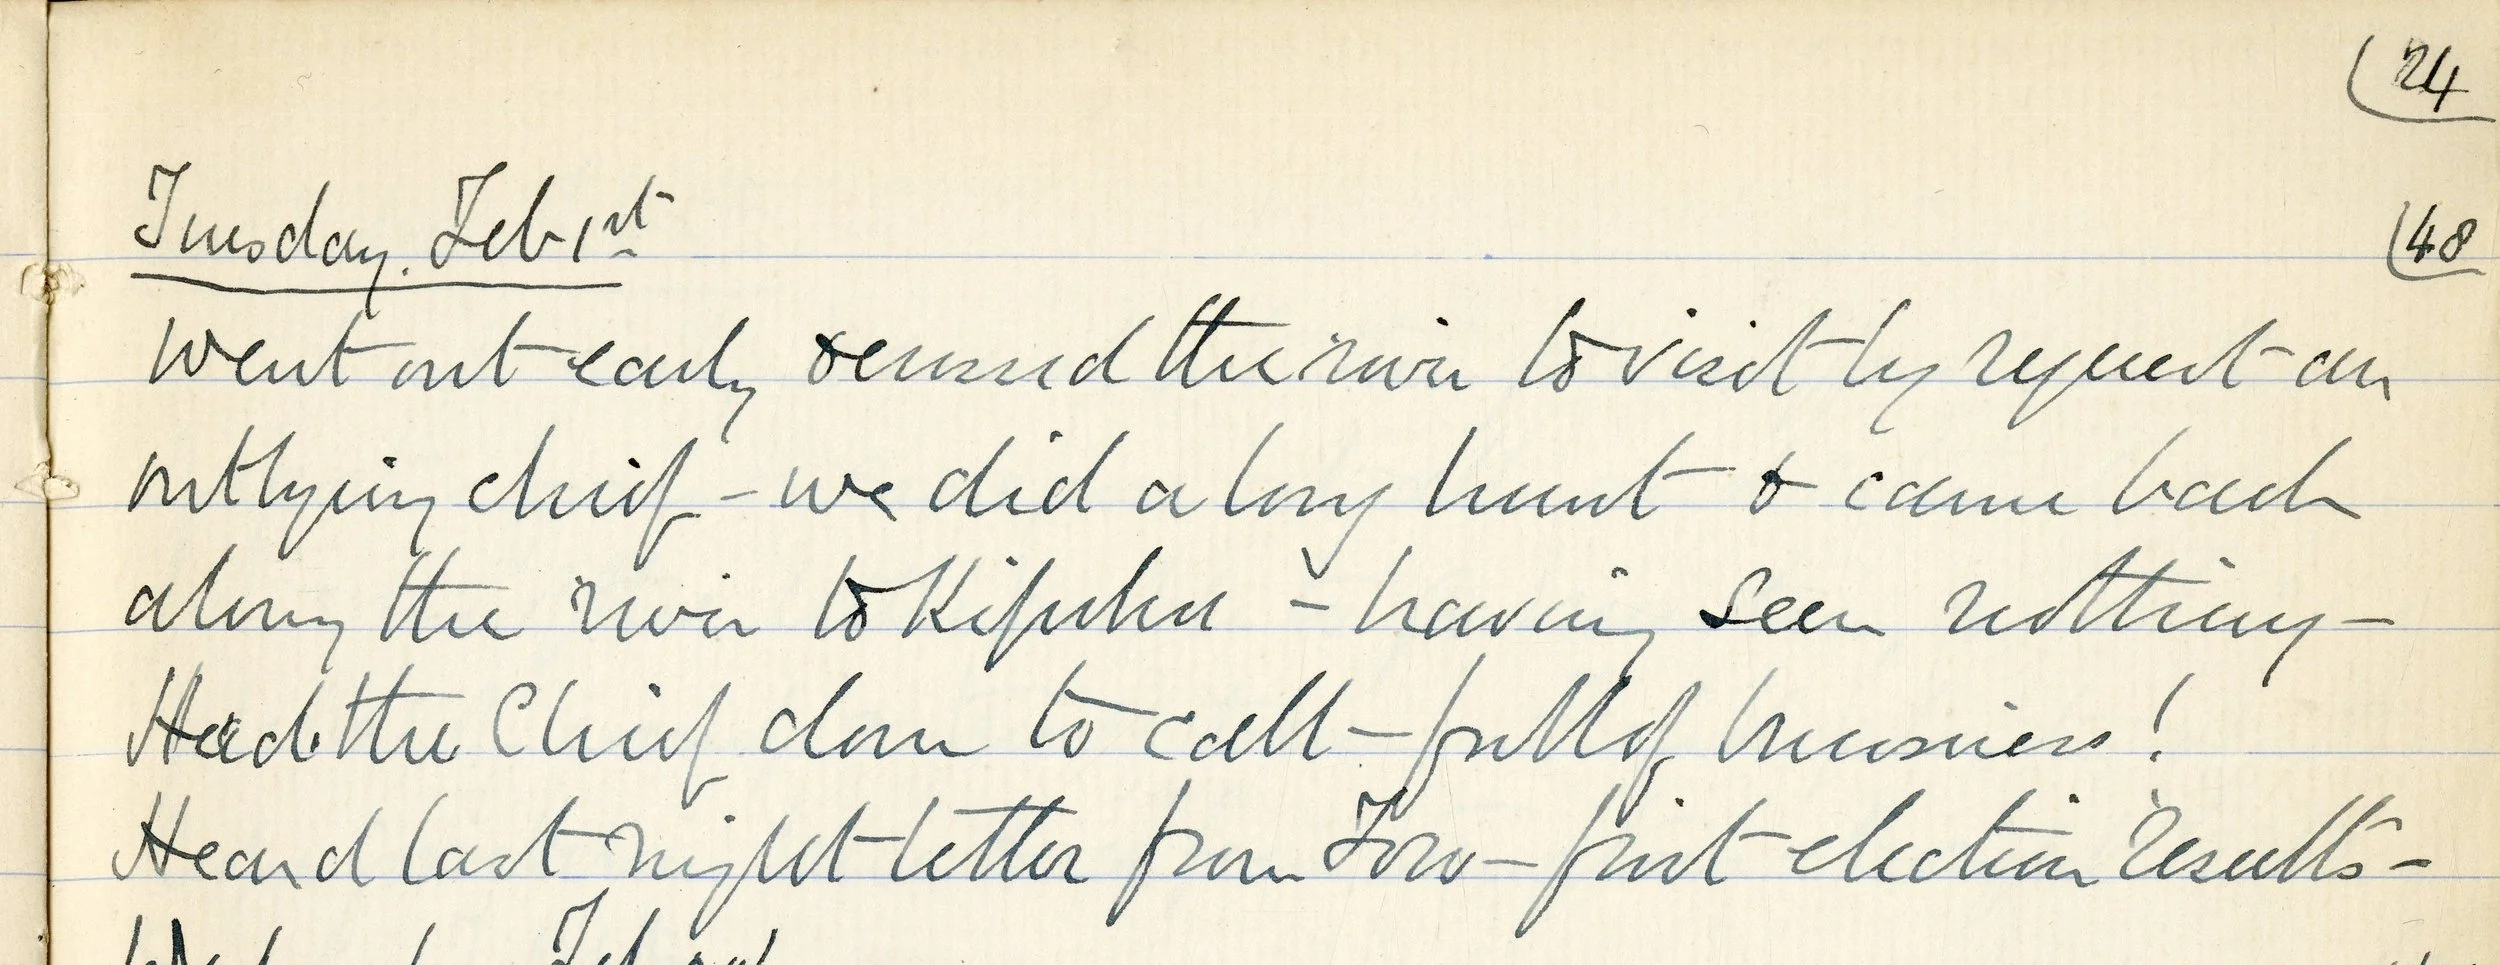 24
Tuesday. Feb 1st
48
Went out early & crossed the river to visit by request an
outlying chief - we did a long hunt & came back
along the river to - having seen nothing -
Had the Chief down to call - full of business!
Heard last night letter from Toro - first election results -